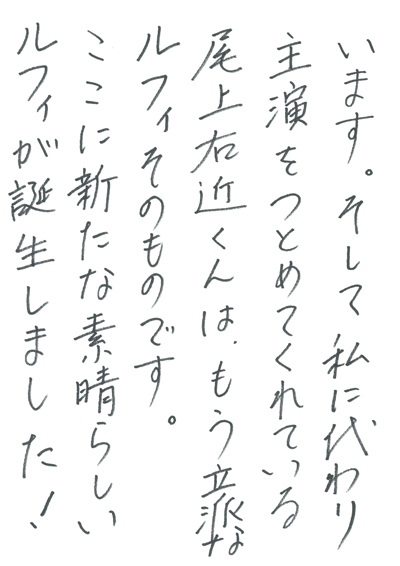 います。そして私に代わり
主演をつとめてくれている
尾上右近くんは、もう立派な
ルフィそのものです。
ここに新たな素晴らしい
ルフィが誕生しました！